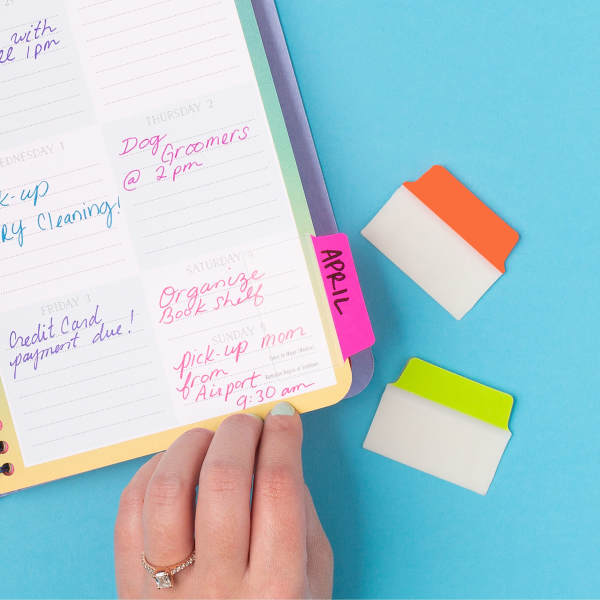 with
1pm
WEDNESDAY 1
-up
RY Cleaning!
THURSDAY 2
Dog
Groomers
@ 2pm
FRIDAY 3
Credit Card
payment due!
SATURDAY
Organize
Book shelf
SUNDAY
pick-up mom
from
Airport
9:30 am
APRIL